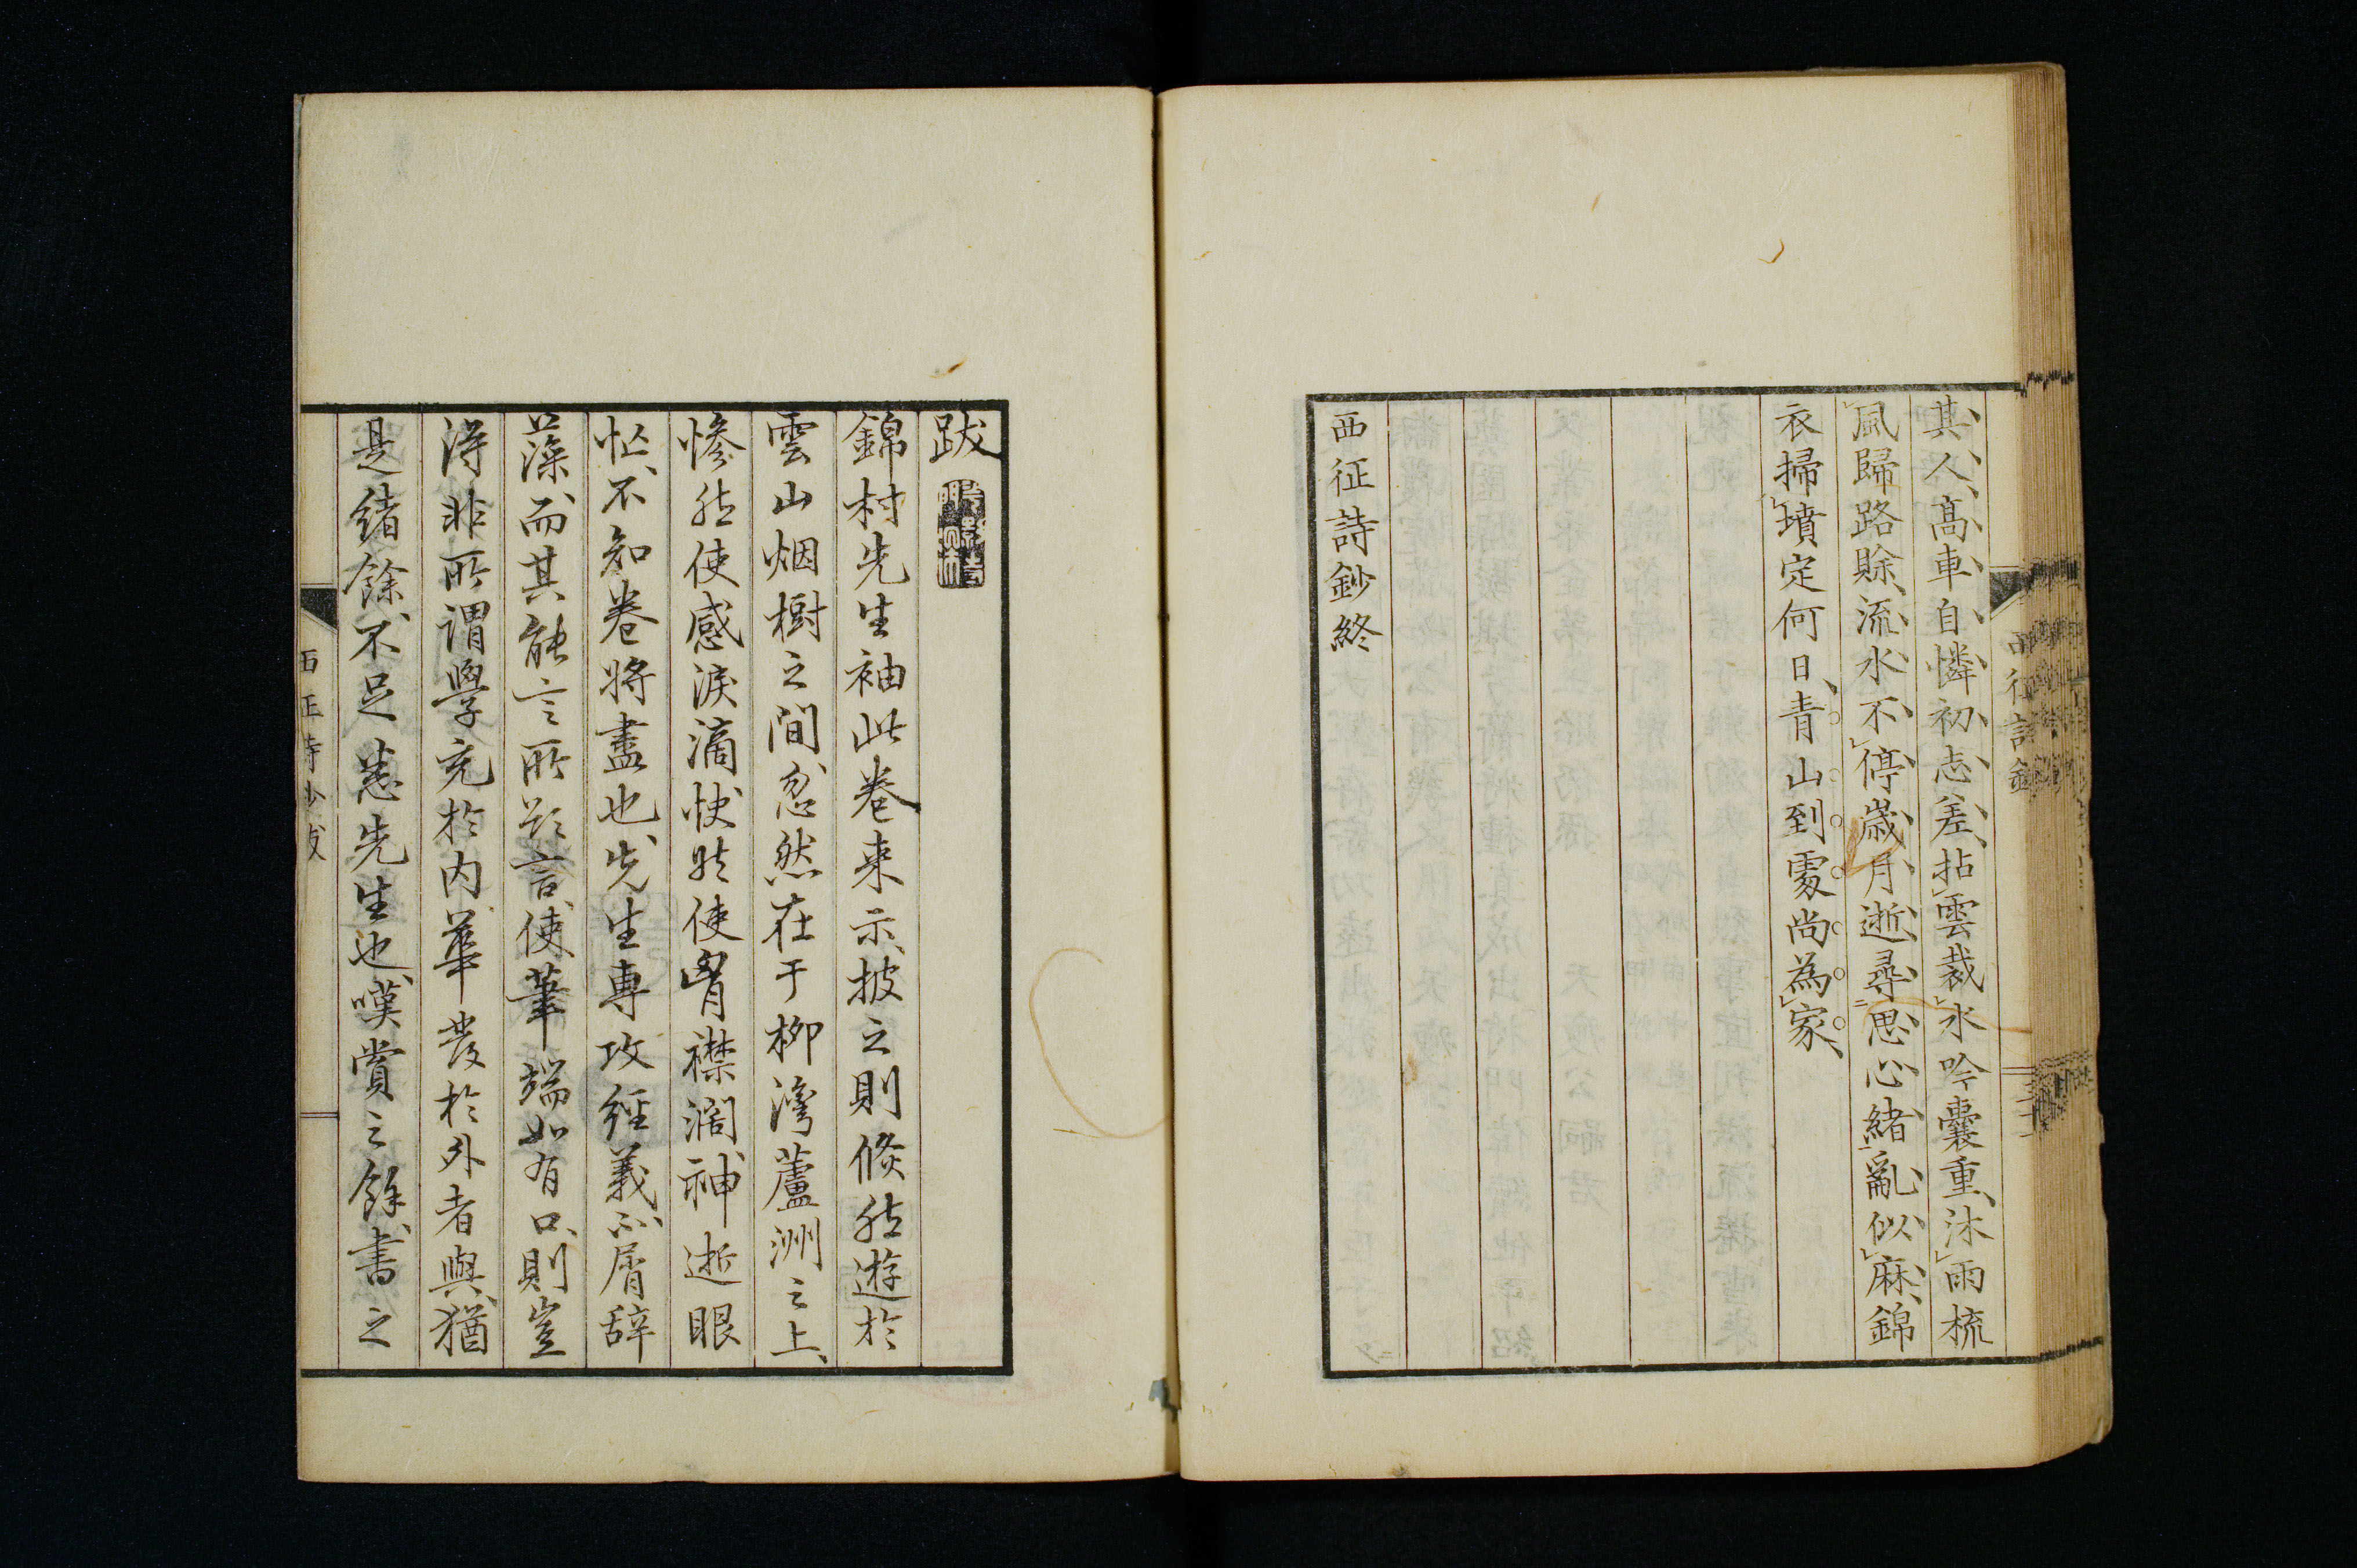 其人、高車自憐初志差、拈雲裁水吟囊重、沐雨梳
風歸路賖、流水不停歳月逝、尋思心緒亂似麻、錦
衣掃墳定何日、青山到處尚為家、
西征詩鈔終
跋
錦村先生袖此卷来示、披之則倏然遊於
雲山烟樹之間、忽然在于柳灣蘆洲之上、
惨然使感淚滴、快然使胷襟濶、神逝眼
忙、不知卷将盡也、先生專攻經義、不屑辞
藻、而其能言所欲言、使筆端如有口、則豈
得非所謂學充於内華發於外者與、猶
是緒餘、不足悉先生也、嘆賞之餘、書之